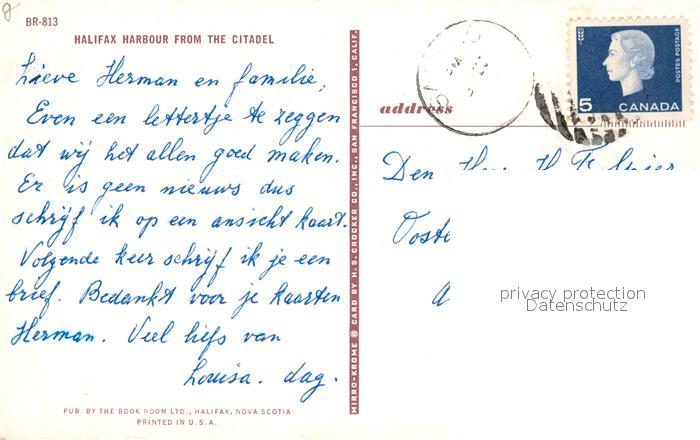 BR-813
HALIFAX HARBOUR FROM THE CITADEL
Lieve Herman en familie,
Even een lettertje te zeggen
dat wij het allen goed maken.
Er is geen nieuws dus
schrijf ik op een ansicht kaart.
Volgende keer schrijf ik je een
brief. Bedankt voor je kaarten
Herman. Veel liefs van
Louisa. dag.
PUB. BY THE BOOK ROOM LTD., HALIFAX, NOVA SCOTIA
PRINTED IN U.S.A.
MIRRO-KROME ® CARD BY H. S. CROCKER CO., INC., SAN FRANCISCO 1, CALIF.
address
5 CANADA
POSTES POSTAGE
PM
Den
Ooste
privacy protection
Datenschutz